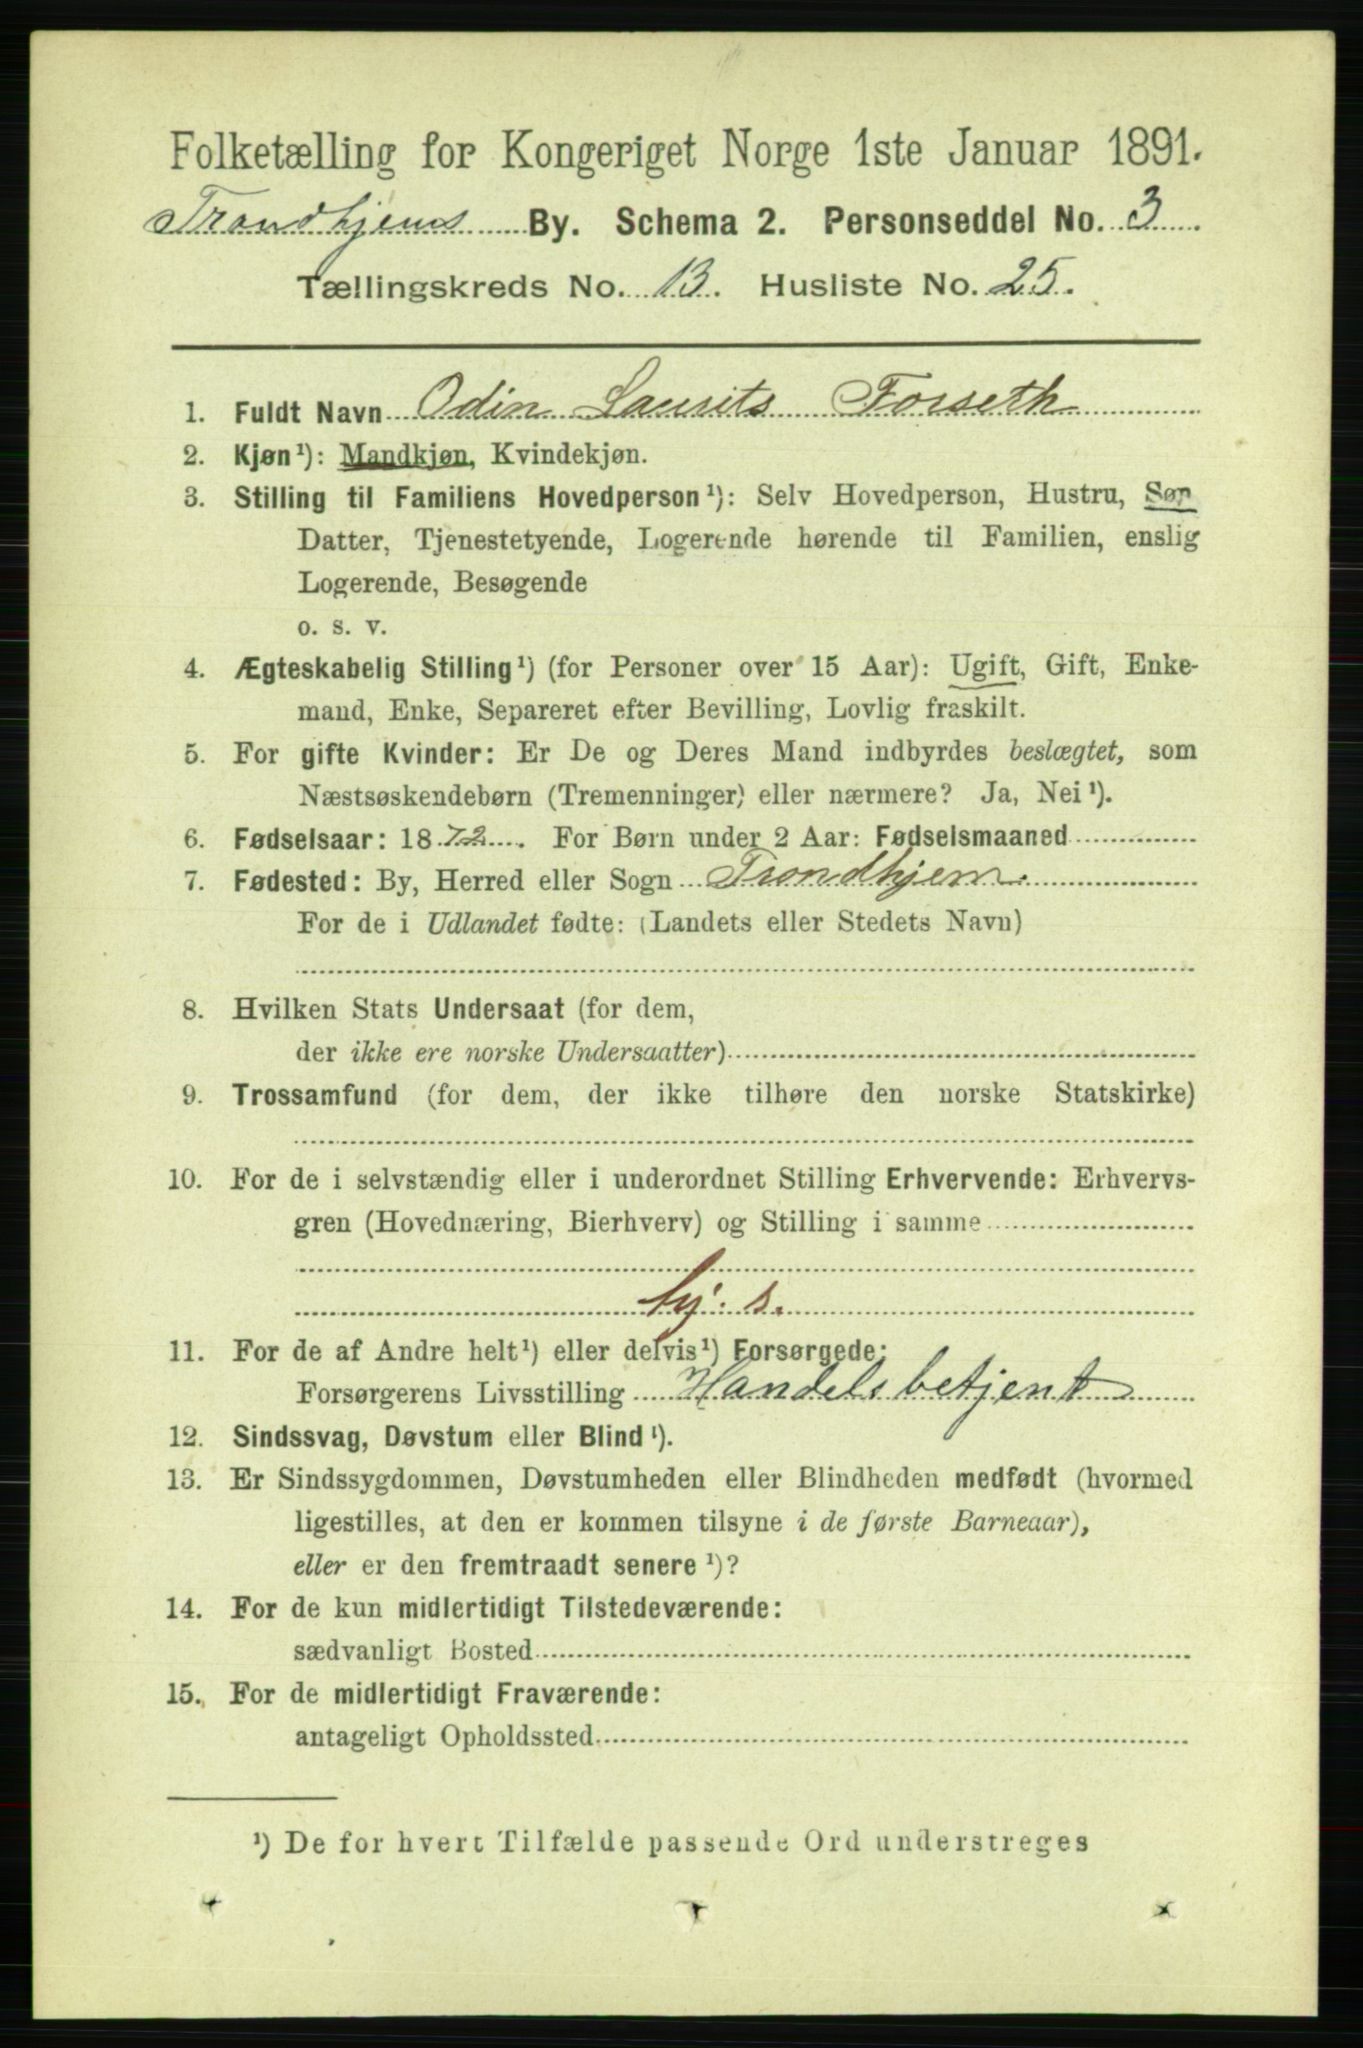 Folketælling for Kongeriget Norge 1ste Januar 1891.
Trondhjems By. Schema 2. Personseddel No. 3
Tællingskreds No. 13. Husliste No. 25.
1. Fuldt Navn Odin Laurits Forseth
2. Kjøn¹): Mandkjøn, Kvindekjøn.
3. Stilling til Familiens Hovedperson¹): Selv Hovedperson, Hustru, Søn
Datter, Tjenestetyende, Logerende hørende til Familien, enslig
Logerende, Besøgende
o. s. v.
4. Ægteskabelig Stilling¹) (for Personer over 15 Aar): Ugift, Gift, Enke-
mand, Enke, Separeret efter Bevilling, Lovlig fraskilt.
5. For gifte Kvinder: Er De og Deres Mand indbyrdes beslægtet, som
Næstsøskendebørn (Tremenninger) eller nærmere? Ja, Nei¹).
6. Fødselsaar: 1872. For Børn under 2 Aar: Fødselsmaaned
7. Fødested: By, Herred eller Sogn Trondhjem.
For de i Udlandet fødte: (Landets eller Stedets Navn)
8. Hvilken Stats Undersaat (for dem,
der ikke ere norske Undersaatter)
9. Trossamfund (for dem, der ikke tilhøre den norske Statskirke)
10. For de i selvstændig eller i underordnet Stilling Erhvervende: Erhvervs-
gren (Hovednæring, Bierhverv) og Stilling i samme
hj. s.
11. For de af Andre helt¹) eller delvis¹) Forsørgede:
Forsørgerens Livsstilling Handelsbetjent
12. Sindssvag, Døvstum eller Blind¹).
13. Er Sindssygdommen, Døvstumheden eller Blindheden medfødt (hvormed
ligestilles, at den er kommen tilsyne i de første Barneaar),
eller er den fremtraadt senere¹)?
14. For de kun midlertidigt Tilstedeværende:
sædvanligt Bosted
15. For de midlertidigt Fraværende:
antageligt Opholdssted
¹) De for hvert Tilfælde passende Ord understreges